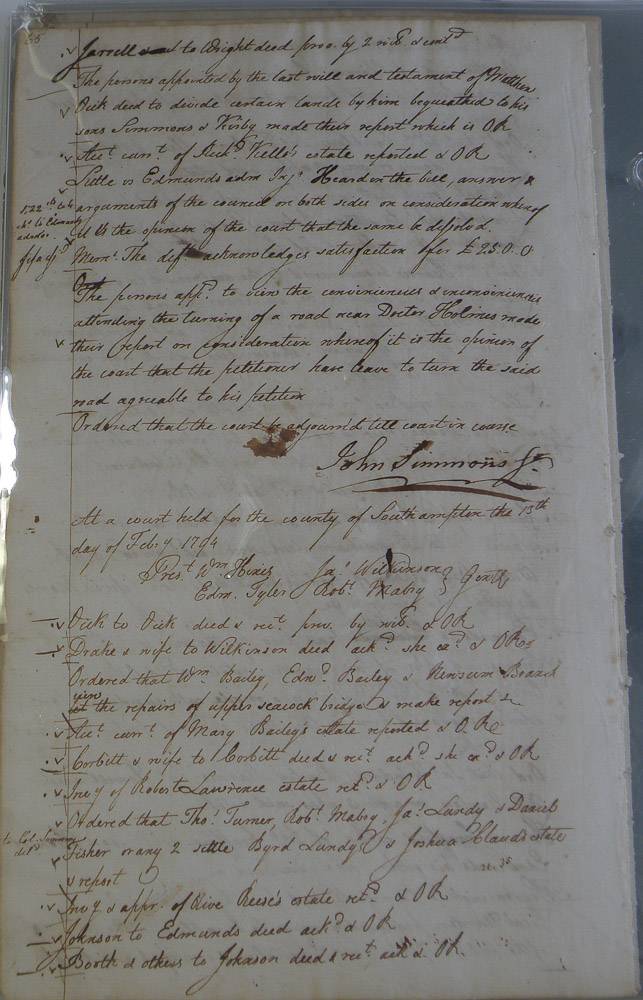 Jarrell & to Wright deed prov. by 2 wits & contd
The persons appointed by the last will and testament of Mathew
Dick deed to divide certain lands by him bequeathed to his
sons Simmons & Kirby made their report which is OR
Acct. currt. of Richd Kello's estate reported & OR
Little vs Edmunds adm Injn Heard on the bill, answer &
arguments of the council on both sides on consideration whereof
it is the opinion of the court that the same be dissolvd.
Memt. The deft. acknowledges satisfaction for £25.0.0
The persons appd. to view the conveniencies & inconveniencies
attending the turning of a road near Doctor Holmes made
their report on consideration whereof it is the opinion of
the court that the petitioner have leave to turn the said
road agreable to his petition
Ordered that the court be adjourn'd till court in course
John Simmons Jr.
At a court held for the county of Southampton the 13th
day of Feby 1794
Prest. Wm. Hines Jas. Wilkinson
Edm. Tyler Robt. Mabry } Gent
Dick to Dick deed & rect. prov. by wits. & OR
Drake & wife to Wilkinson deed ackd. she exd. & OR
Ordered that Wm. Bailey, Edwd. Bailey & Newsum Branch
view
the repairs of upper seacock bridge & make report &
Acct. currt. of Mary Bailey's estate reported & O.R
Corbitt & wife to Corbitt deed & rect. ackd. she exd. & OR
Invy of Robert Lawrence estate retd. & OR
Ordered that Thos. Turner, Robt. Mabry, Jas. Lundy & Daniel
to Col. Simmons
Fisher or any 2 settle Byrd Lundy & Joshua Claud's estate
& report
Invy & appr. of Olive Reese's estate retd. & OR
Johnson to Edmunds deed ackd. & OR
Booth & others to Johnson deed & rect. ack & OR.